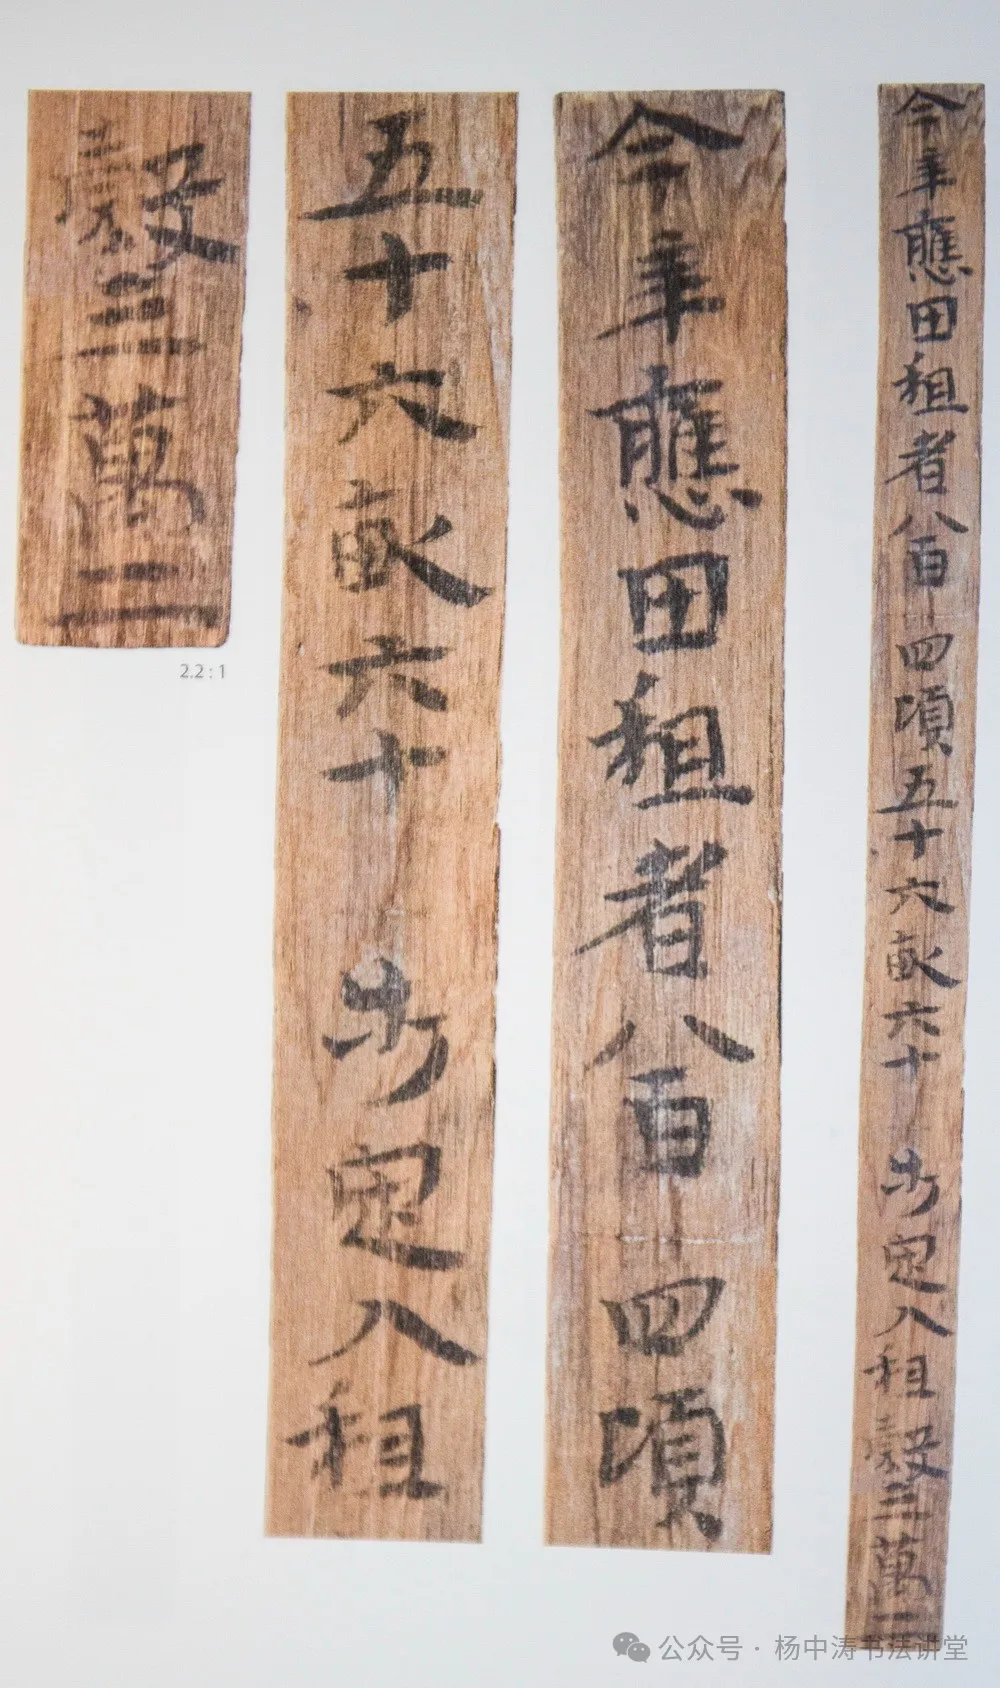 今年應田租者八百四頃五十六畝六十步定入租穀三萬二
今年應田租者八百四頃
五十六畝六十步定入租
穀三萬二
2.2 : 1
公众号 · 杨中涛书法讲堂